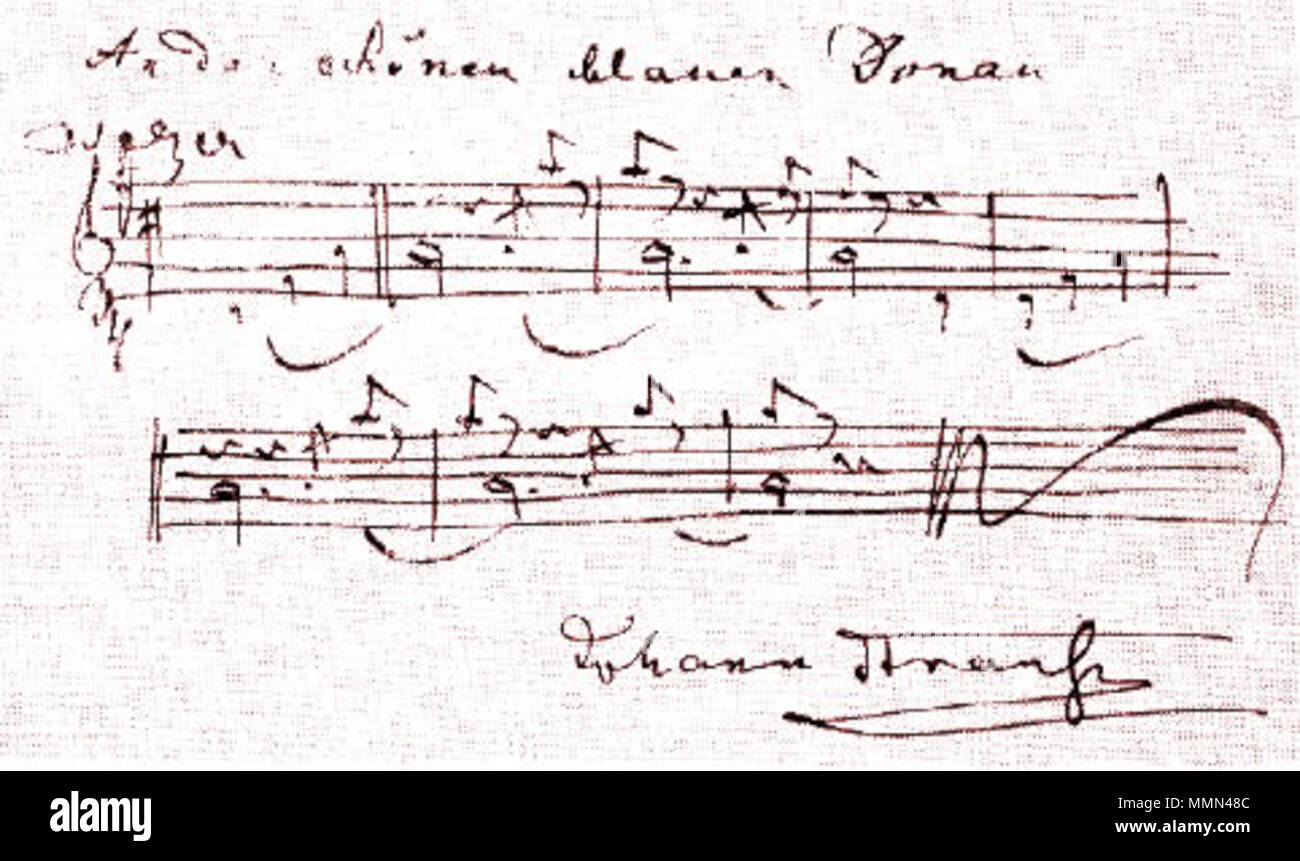 An der schönen blauen Donau
Walzer
Johann Strauß
alamy
alamy
Image ID: MMN48C
www.alamy.com